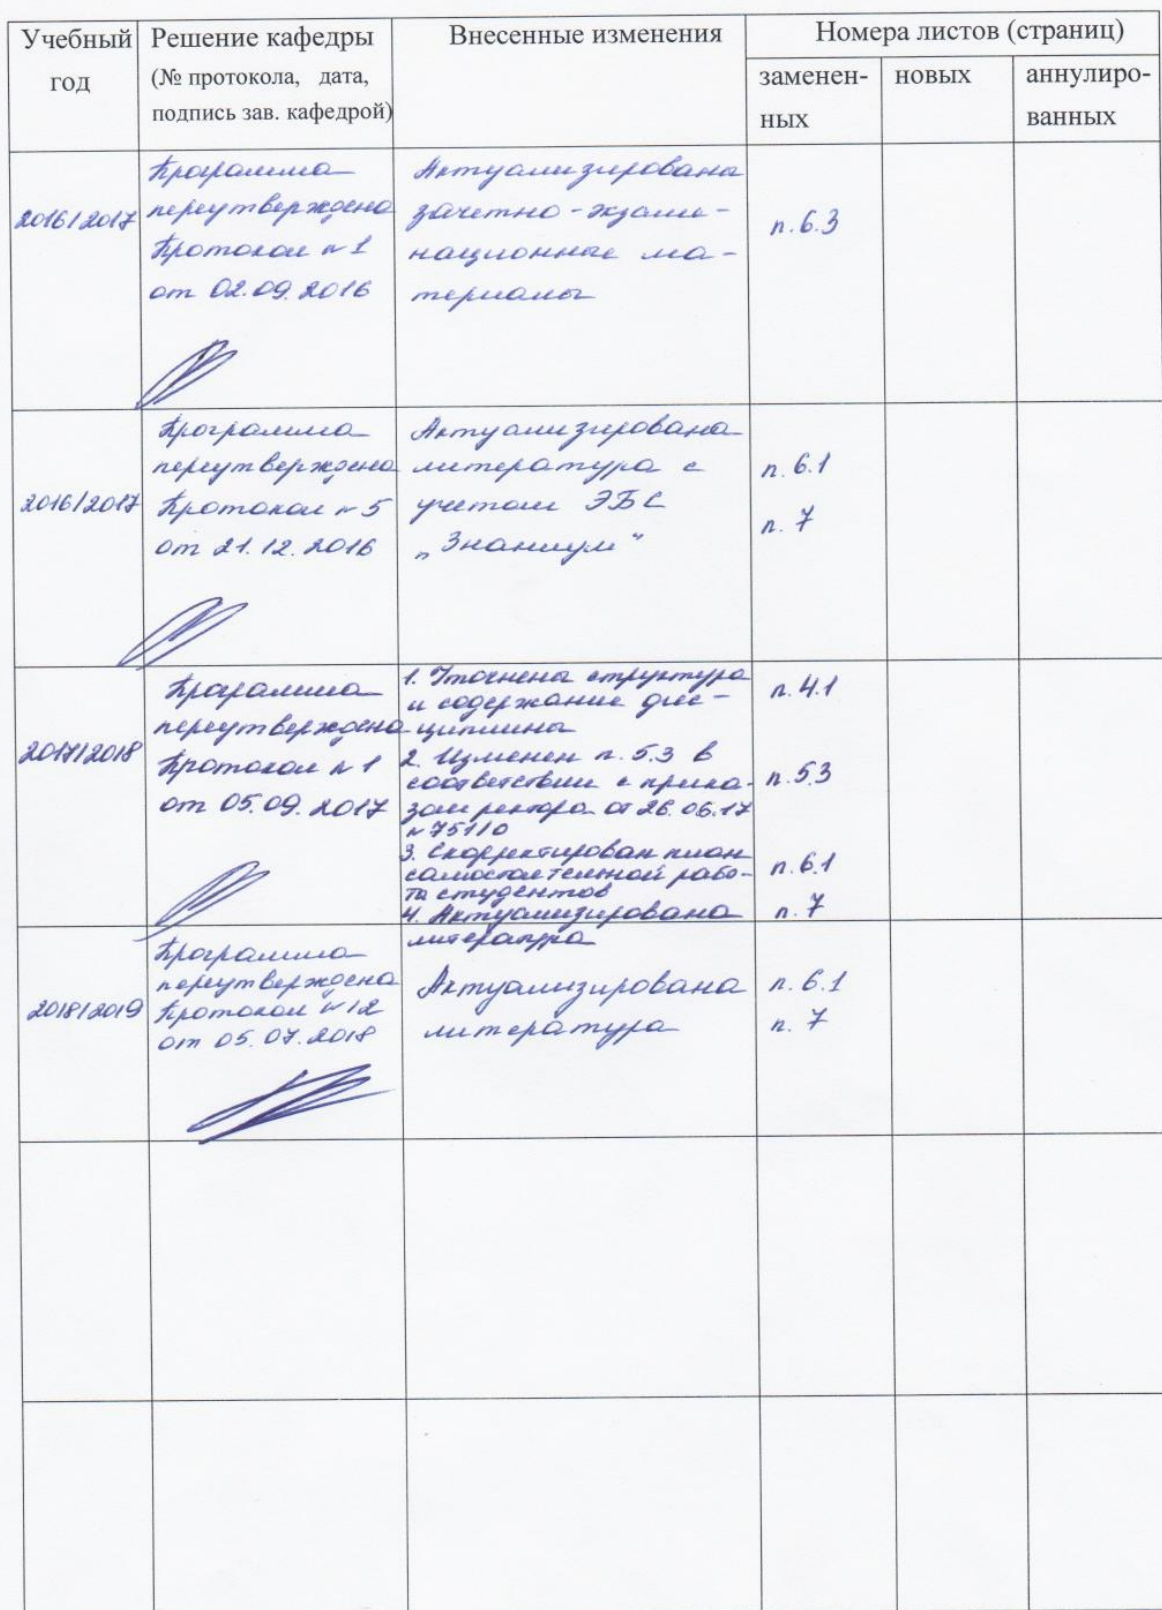 Учебный год
Решение кафедры
(№ протокола, дата,
подпись зав. кафедрой)
Внесенные изменения
Номера листов (страниц)
заменен-
ных
новых
аннулиро-
ванных
2016/2017
Программа
переутверждена
Протокол № 1
от 02.09.2016
Актуализированы
зачетно-экзаме-
национные ма-
териалы
п. 6.3
2016/2017
Программа
переутверждена
Протокол № 5
от 21.12.2016
Актуализирована
литература с
учетом ЭБС
„Знаниум“
п. 6.1
п. 7
2017/2018
Программа
переутверждена
Протокол № 1
от 05.09.2017
1. Уточнены структура
и содержание дис-
циплины
2. Изменен п. 5.3 в
соответствии с прика-
зом ректора от 26.06.17
№ 75110
3. Скорректирован план
самостоятельной рабо-
ты студентов
4. Актуализирована
литература
п. 4.1
п. 5.3
п. 6.1
п. 7
2018/2019
Программа
переутверждена
Протокол № 12
от 05.07.2018
Актуализирована
литература
п. 6.1
п. 7